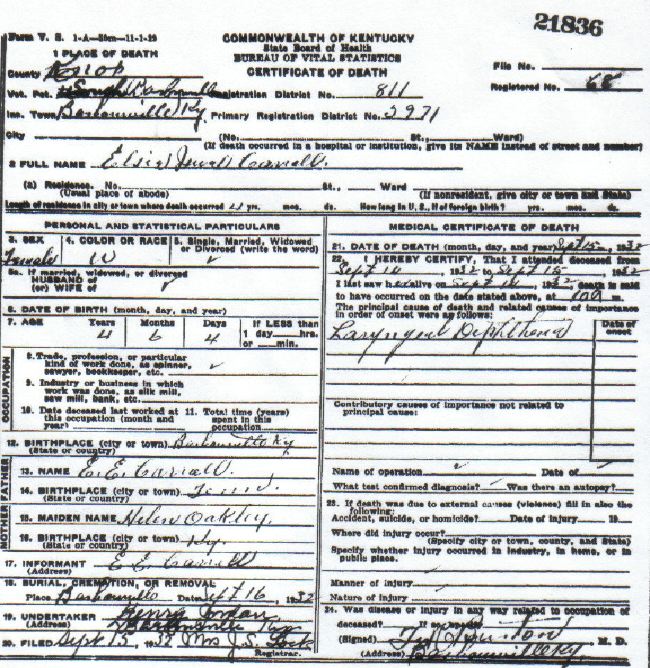 21836
Form V. S. 1-A—50m—11-1-29
COMMONWEALTH OF KENTUCKY
State Board of Health
BUREAU OF VITAL STATISTICS
CERTIFICATE OF DEATH
1 PLACE OF DEATH
County Knox
File No.
Registered No. 68
Vot. Pct. Registration District No. 811
Inc. Town Barbourville Ky. Primary Registration District No. 5971
City (No. St., Ward)
(If death occurred in a hospital or institution, give its NAME instead of street and number)
2 FULL NAME Elsie Jewell Carroll.
(a) Residence. No. St., Ward
(Usual place of abode) (If nonresident, give city or town and State)
Length of residence in city or town where death occurred yrs. mos. ds. How long in U. S., if of foreign birth? yrs. mos. ds.
PERSONAL AND STATISTICAL PARTICULARS
3. SEX 4. COLOR OR RACE 5. Single, Married, Widowed or Divorced (write the word)
Female W
5a. If married, widowed, or divorced
HUSBAND of
(or) WIFE of
6. DATE OF BIRTH (month, day, and year)
7. AGE Years Months Days If LESS than
4 6 4 1 day hrs.
or min.
OCCUPATION
8. Trade, profession, or particular
kind of work done, as spinner,
sawyer, bookkeeper, etc.
9. Industry or business in which
work was done, as silk mill,
saw mill, bank, etc.
10. Date deceased last worked at this occupation (month and year)
11. Total time (years) spent in this occupation
12. BIRTHPLACE (city or town) Barbourville Ky
(State or country)
FATHER
13. NAME E. E. Carroll.
14. BIRTHPLACE (city or town) Tenn.
(State or country)
MOTHER
15. MAIDEN NAME Helen Oakley.
16. BIRTHPLACE (city or town) Ky.
(State or country)
17. INFORMANT E E Carroll
(Address)
18. BURIAL, CREMATION, OR REMOVAL
Place Barbourville Date Sept 16, 1932
19. UNDERTAKER Henry
(Address)
20. FILED Sept 15, 1932 Mrs J. S.
Registrar.
MEDICAL CERTIFICATE OF DEATH
21. DATE OF DEATH (month, day, and year) Sept 15, 1932
22. I HEREBY CERTIFY, That I attended deceased from
Sept 10, 1932 to Sept 15, 1932
I last saw her alive on Sept, 1932 death is said
to have occurred on the date stated above, at m.
The principal cause of death and related causes of importance
in order of onset were as follows:
Date of onset
Laryngeal Diphtheria
Contributory causes of importance not related to
principal cause:
Name of operation Date of
What test confirmed diagnosis? Was there an autopsy?
23. If death was due to external causes (violence) fill in also the
following:
Accident, suicide, or homicide? Date of injury 19
Where did injury occur?
(Specify city or town, county, and State)
Specify whether injury occurred in industry, in home, or in
public place.
Manner of injury
Nature of injury
24. Was disease or injury in any way related to occupation of
deceased? If so, specify
(Signed) M. D.
(Address) Barbourville Ky.